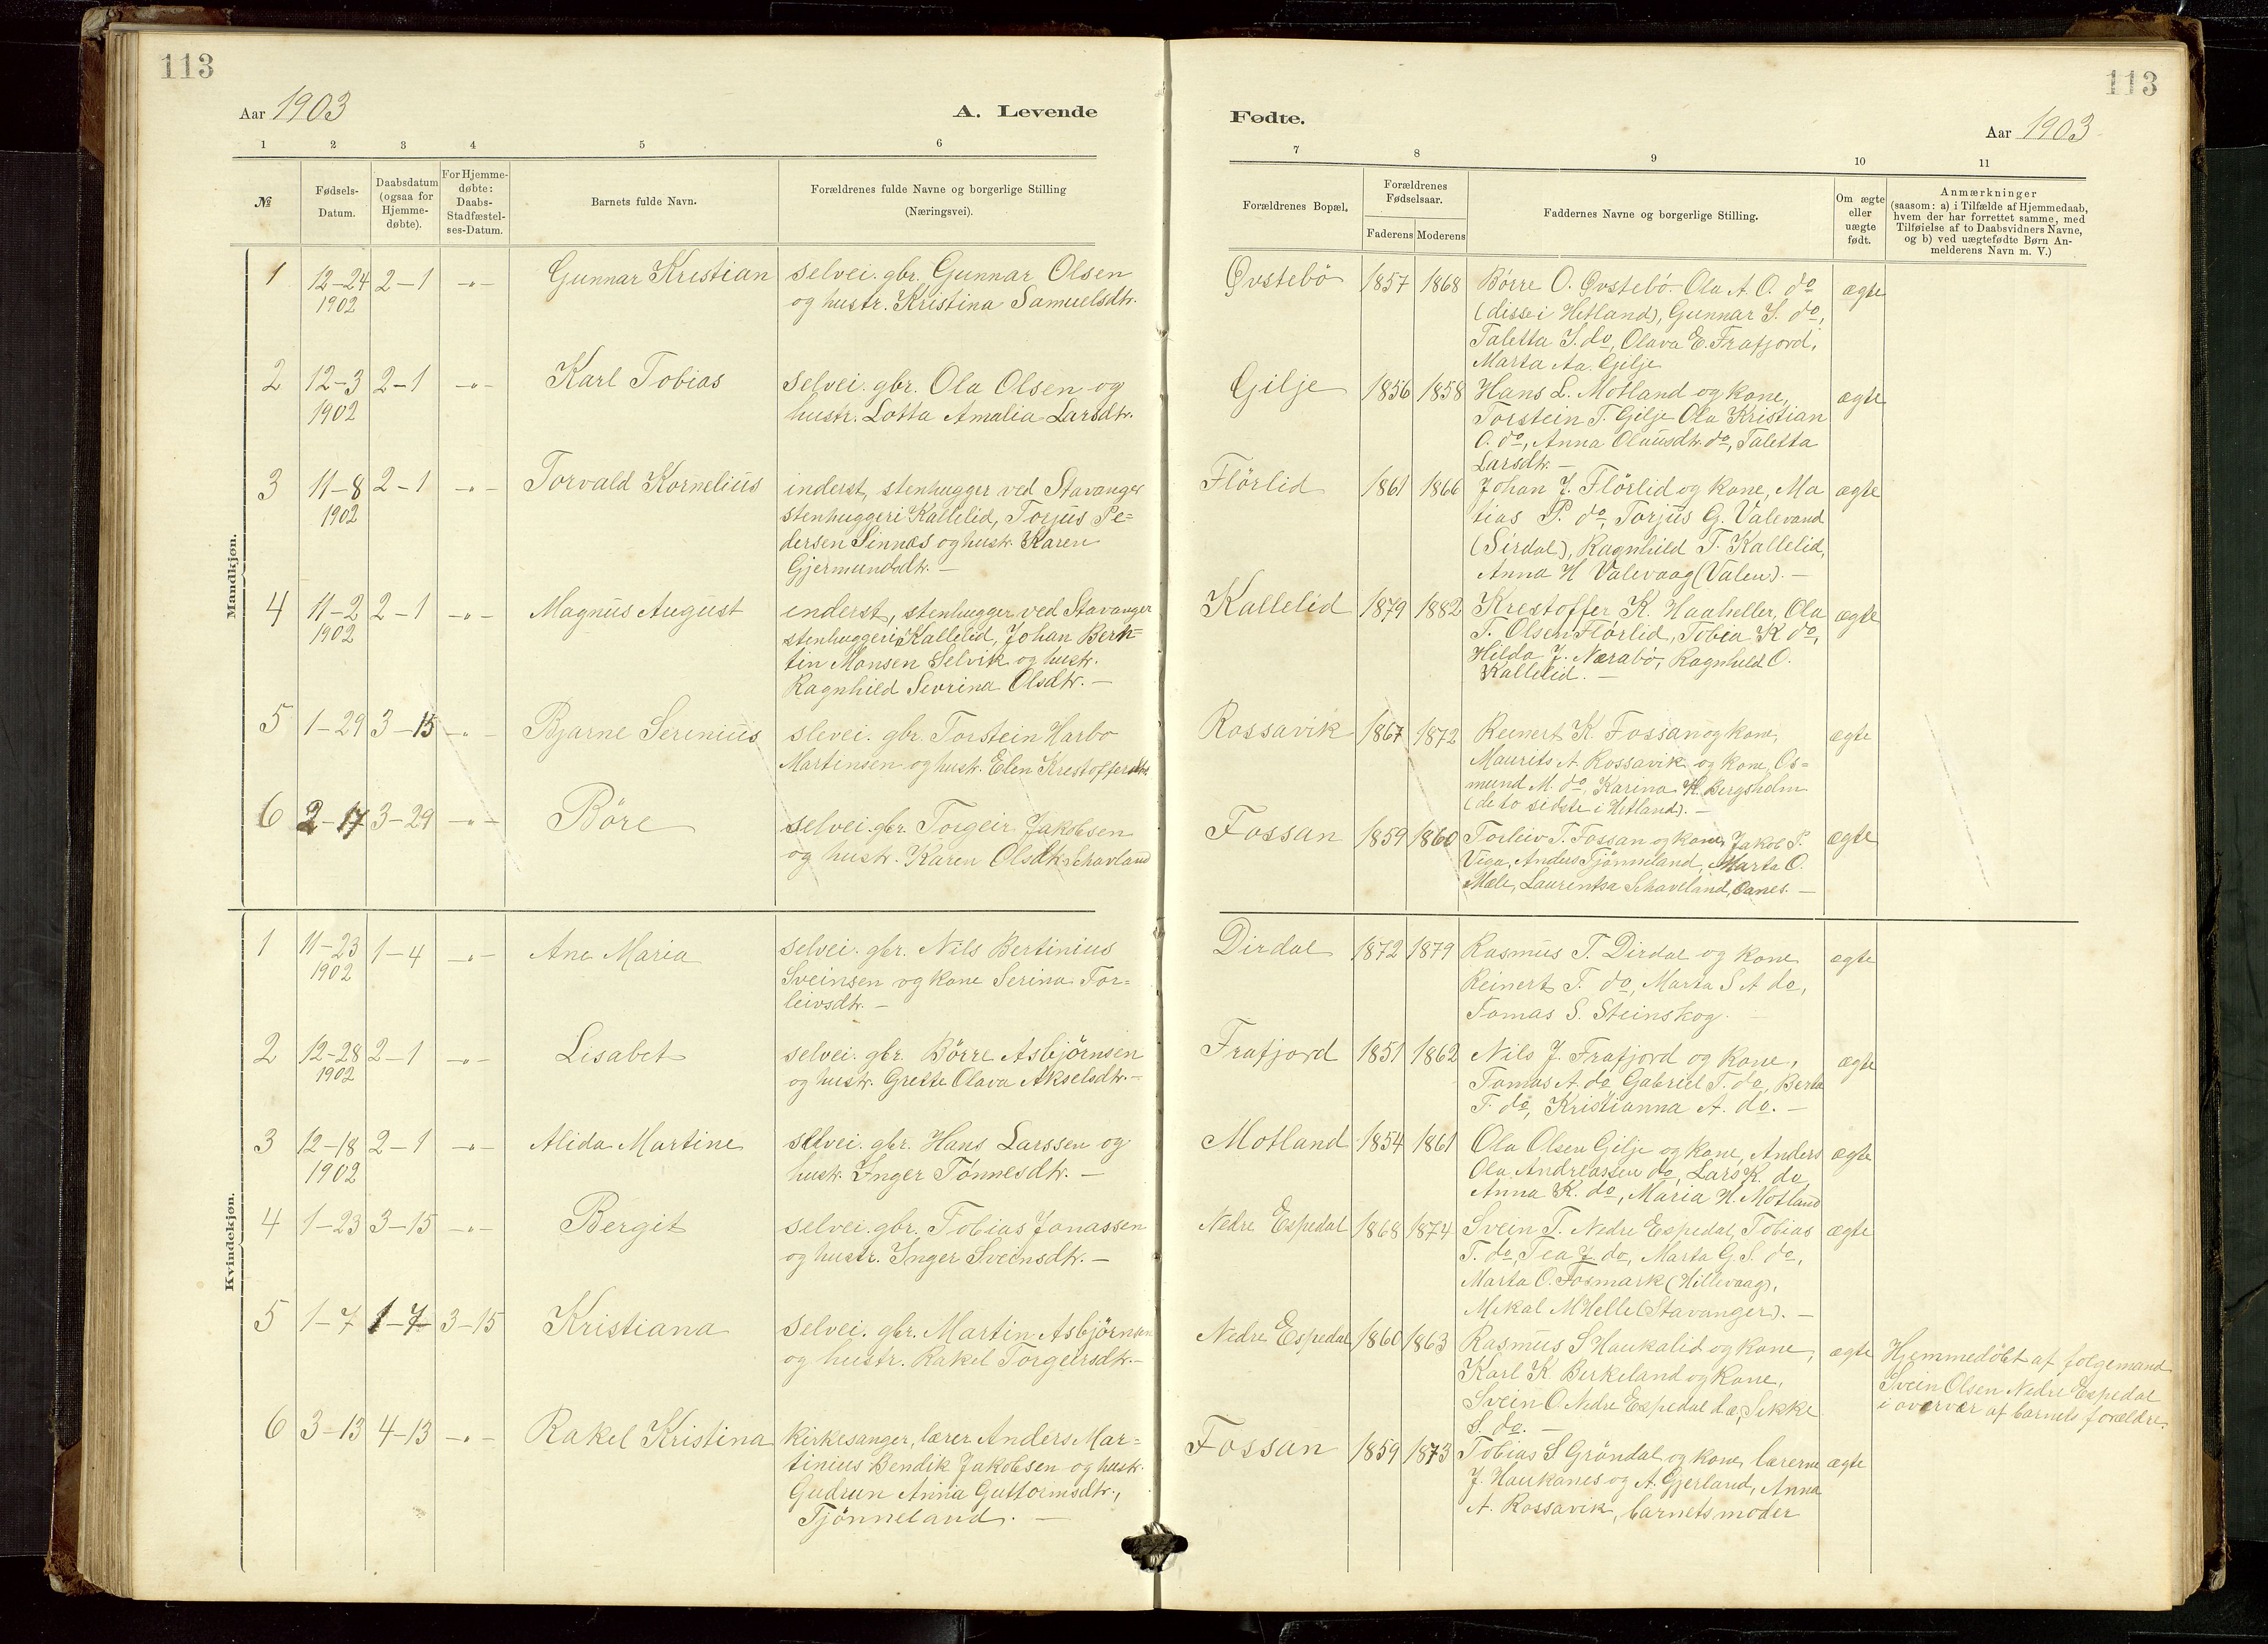 113
Aar 1903
A. Levende
1 2 3 4 5 6
№
Fødsels-
Datum.
Daabsdatum
(ogsaa for
Hjemme-
døbte).
For Hjemme-
døbte:
Daabs-
Stadfæstel-
ses-Datum.
Barnets fulde Navn.
Forældrenes fulde Navne og borgerlige Stilling
(Næringsvei).
Mandkjøn.
1 12-24 2-1 -"- Gunnar Kristian selvei. gbr. Gunnar Olsen
1902 og hustr. Kristina Samuelsdtr.
2 12-3 2-1 -"- Karl Tobias selvei. gbr. Ola Olsen og
1902 hustr. Lotta Amalia Larsdtr.
3 11-8 2-1 -"- Torvald Kornelius inderst, stenhugger ved Stavanger
1902 stenhuggeri Kallelid, Torjus Pe=
dersen Sinnes og hustr. Karen
Gjermundsdtr. -
4 11-2 2-1 -"- Magnus August inderst, stenhugger ved Stavanger
1902 stenhuggeri Kallelid, Johan Bern=
tin Monsen Selvik og hustr.
Ragnhild Sevrina Olsdtr. -
5 1-29 3-15 -"- Bjarne Serenius slevei. gbr. Torstein Harbo
Martensen og hustr. Elen Krestoffersdtr.
6 2-17 3-29 -"- Böre selvei. gbr. Torgeir Jakobsen
og hustr. Karen Olsdtr. Schavland
Kvindekjøn.
1 11-23 1-4 -"- Ane Maria selvei. gbr. Nils Bertinius
1902 Sveinsen og kone Serina Tor=
leivsdtr. -
2 12-28 2-1 -"- Lisabet selvei. gbr. Börre Asbjörnsen
1902 og hustr. Grette Olava Akselsdtr. -
3 12-18 2-1 -"- Alida Martine selvei. gbr. Hans Larssen og
1902 hustr. Inger Tönnesdtr. -
4 1-23 3-15 -"- Bergit selvei. gbr. Tobias Jonassen
og hustr. Inger Sveinsdtr. -
5 1-7 1-7 3-15 Kristiana selvei. gbr. Martin Asbjörnsen
og hustr. Rakel Torgeirsdtr. -
6 3-13 4-13 -"- Rakel Kristina kirkesanger, lærer Anders Mar=
tinius Bendik Jakobsen og hustr.
Gudrun Anna Guttormsdtr.,
Tjönneland. -
113
Fødte.
Aar 1903
7 8 9 10 11
Forældrenes Bopæl.
Forældrenes
Fødselsaar.
Faderens Moderens
Faddernes Navne og borgerlige Stilling.
Om ægte
eller
uægte
født.
Anmærkninger
(saasom: a) i Tilfælde af Hjemmedaab,
hvem der har forrettet samme, med
Tilføielse af to Daabsvidners Navne,
og b) ved uægtefødte Børn An-
melderens Navn m. V.)
Øvstebö 1857 1868 Börre O. Øvstebö Ola A. O. do ægte
(disse i Hetland), Gunnar S. do,
Taletta S. do, Olava E. Frafjord,
Marta Aa. Gilje
Gilje 1856 1858 Hans L. Motland og kone, ægte
Torstein T. Gilje Ola Kristian
O. do, Anna Olausdtr. do, Taletta
Larsdtr. -
Flörlid 1861 1866 Johan J. Flörlid og kone, Ma ægte
tias P. do, Torjus G. Valevand
(Sirdal), Ragnhild T. Kallelid,
Anna H Valevaag (Valen). -
Kallelid 1879 1882 Krestoffer K. Haaheller, Ola ægte
T. Olsen Flörlid, Tobia K do,
Hilda J. Nærabö, Ragnhild O.
Kallelid. -
Rossavik 1867 1872 Reinert K. Fossan og kone, ægte
Maurits A Rossavik og kone, Os=
mund M. do, Karina H. Bergsholm
(de to sidste i Hetland). -
Fossan 1859 1860 Torleiv T. Fossan og kone, Jakob P. ægte
Viga, Anders Tjönneland, Marta O.
Mæle, Laurentsa Schaveland, Oanes. -
Dirdal 1872 1879 Rasmus T. Dirdal og kone ægte
Reinert T. do, Marta S A do,
Tomas S. Steinskog. -
Frafjord 1851 1862 Nils J. Frafjord og kone, ægte
Tomas A. do Gabriel T. do, Berta
T. do, Kristianna A. do. -
Motland 1854 1861 Ola Olsen Gilje og kone, Anders ægte
Ola Andreassen do, Lars K. do,
Anna K. do, Maria H. Motland
Nedre Espedal 1868 1874 Svein T. Nedre Espedal, Tobias ægte
T. do, Tea J do, Marta G. S. do,
Marta O. Fosmark (Hillevaag),
Mikal M Helle (Stavanger). -
Nedre Espedal 1860 1863 Rasmus S Haukalid og kone, ægte Hjemmedöbt af folgemand
Karl K Berkeland og kone, Svein Olsen Nedre Espedal
Svein O. Nedre Espedal do, Sekke i overvær af barnets forældre.
S. do. -
Fossan 1859 1873 Tobias S Gröndal og kone, lærerne ægte
J. Haukanes og A. Gjerland, Anna
A. Rossavik, barnets moder